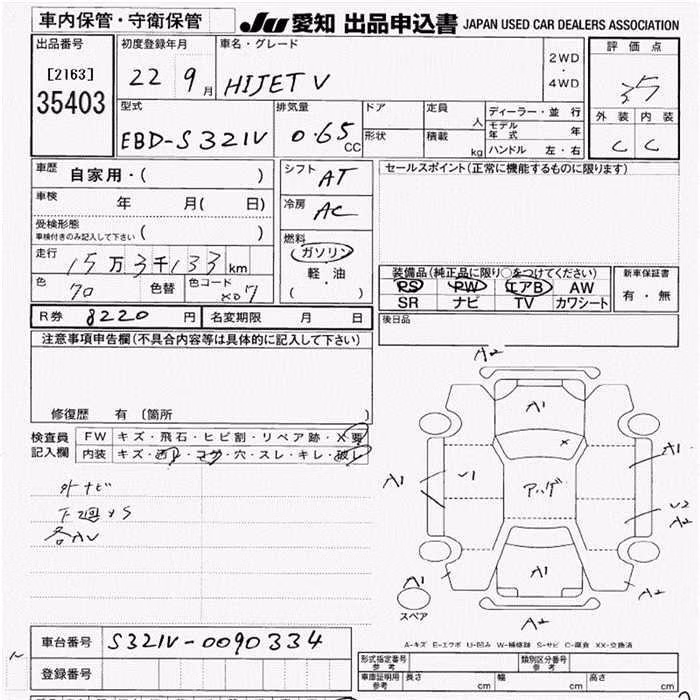 車内保管・守衛保管
JU 愛知 出品申込書 JAPAN USED CAR DEALERS ASSOCIATION
出品番号
[2163]
35403
初度登録年月
22 9月
車名・グレード
HIJET V
2WD
・
4WD
評価点
3.5
外装 内装
C C
型式
EBD-S321V
排気量
0.65 CC
ドア
形状
定員 人
積載 kg
ディーラー・並行
モデル年式 年
ハンドル 左・右
車歴 自家用・( )
車検 年 月( 日)
受検形態
車検付きのみ記入して下さい ( )
走行 15万3千133km
色 色替 色コード
シフト AT
冷房 AC
燃料
ガソリン
軽・油
( )
セールスポイント(正常に機能するものに限ります)
装備品(純正品に限り○をつけてください)
PS PW エアB AW
SR ナビ TV カワシート
新車保証書
有・無
後日品
R券 8220円 名変期限 月 日
注意事項申告欄(不具合内容等は具体的に記入して下さい)
修復歴 有 〔箇所 〕
検査員
記入欄
FW キズ・飛石・ヒビ割・リペア跡・X要
内装 キズ・汚レ・コゲ・穴・スレ・キレ・破レ
外ナビ
下廻りS
各AU
A2
A1
X
A1
U1
アゲ
A1
U2
A2
A1
A1
A2
A2
スペア
A-キズ E-エクボ U-凹み W-補修跡 S-サビ C-腐食 XX-交換済
車台番号 S321V-0090334
登録番号
形式指定番号
参考
類別区分番号
参考
車庫証明用
参考
長さ cm 幅 cm 高さ cm